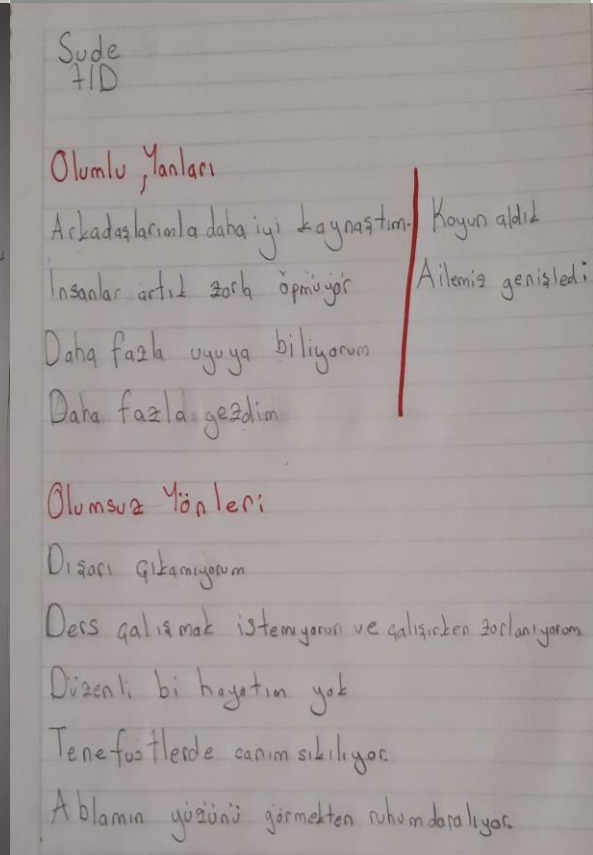 Sude
7/D
Olumlu Yanları
Arkadaşlarımla daha iyi kaynaştım.
İnsanlar artık zorla öpmüyor
Daha fazla uyuya biliyorum
Daha fazla gezdim
Koyun aldık
Ailemiz genişledi
Olumsuz Yönleri
Dışarı çıkamıyorum
Ders çalışmak istemiyorum ve çalışırken zorlanıyorum
Düzenli bi hayatım yok
Tenefüstlerde canım sıkılıyor.
Ablamın yüzünü görmekten ruhum daralıyor.